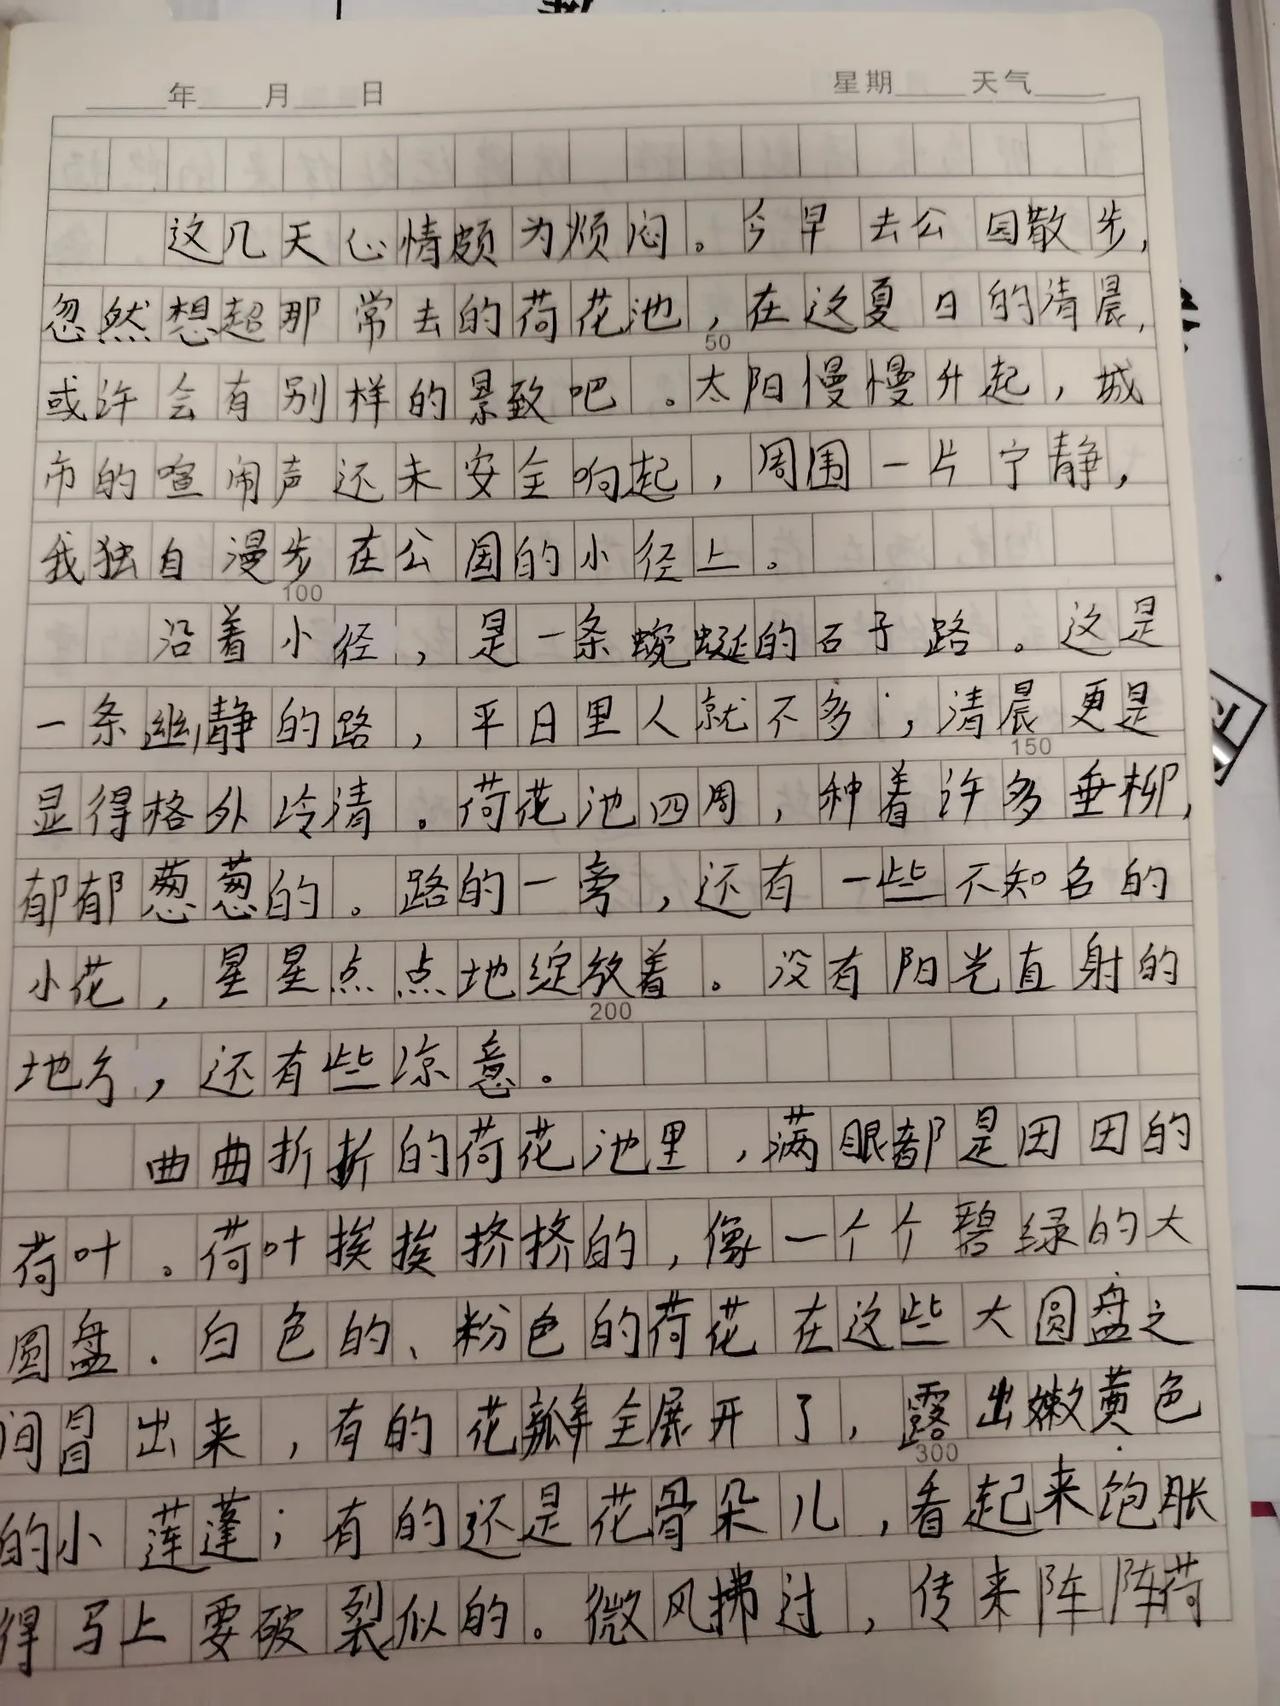 ____年____月____日 星期____天气____
这几天心情颇为烦闷。今早去公园散步，
忽然想起那常去的荷花池，在这夏日的清晨，
50
或许会有别样的景致吧。太阳慢慢升起，城
市的喧闹声还未安全响起，周围一片宁静，
我独自漫步在公园的小径上。
100
沿着小径，是一条蜿蜒的石子路。这是
一条幽静的路，平日里人就不多，清晨更是
150
显得格外冷清。荷花池四周，种着许多垂柳，
郁郁葱葱的。路的一旁，还有一些不知名的
小花，星星点点地绽放着。没有阳光直射的
200
地方，还有些凉意。
曲曲折折的荷花池里，满眼都是田田的
荷叶。荷叶挨挨挤挤的，像一个个碧绿的大
圆盘．白色的、粉色的荷花在这些大圆盘之
间冒出来，有的花瓣全展开了，露出嫩黄色
300
的小莲蓬；有的还是花骨朵儿，看起来饱胀
得马上要破裂似的。微风拂过，传来阵阵荷